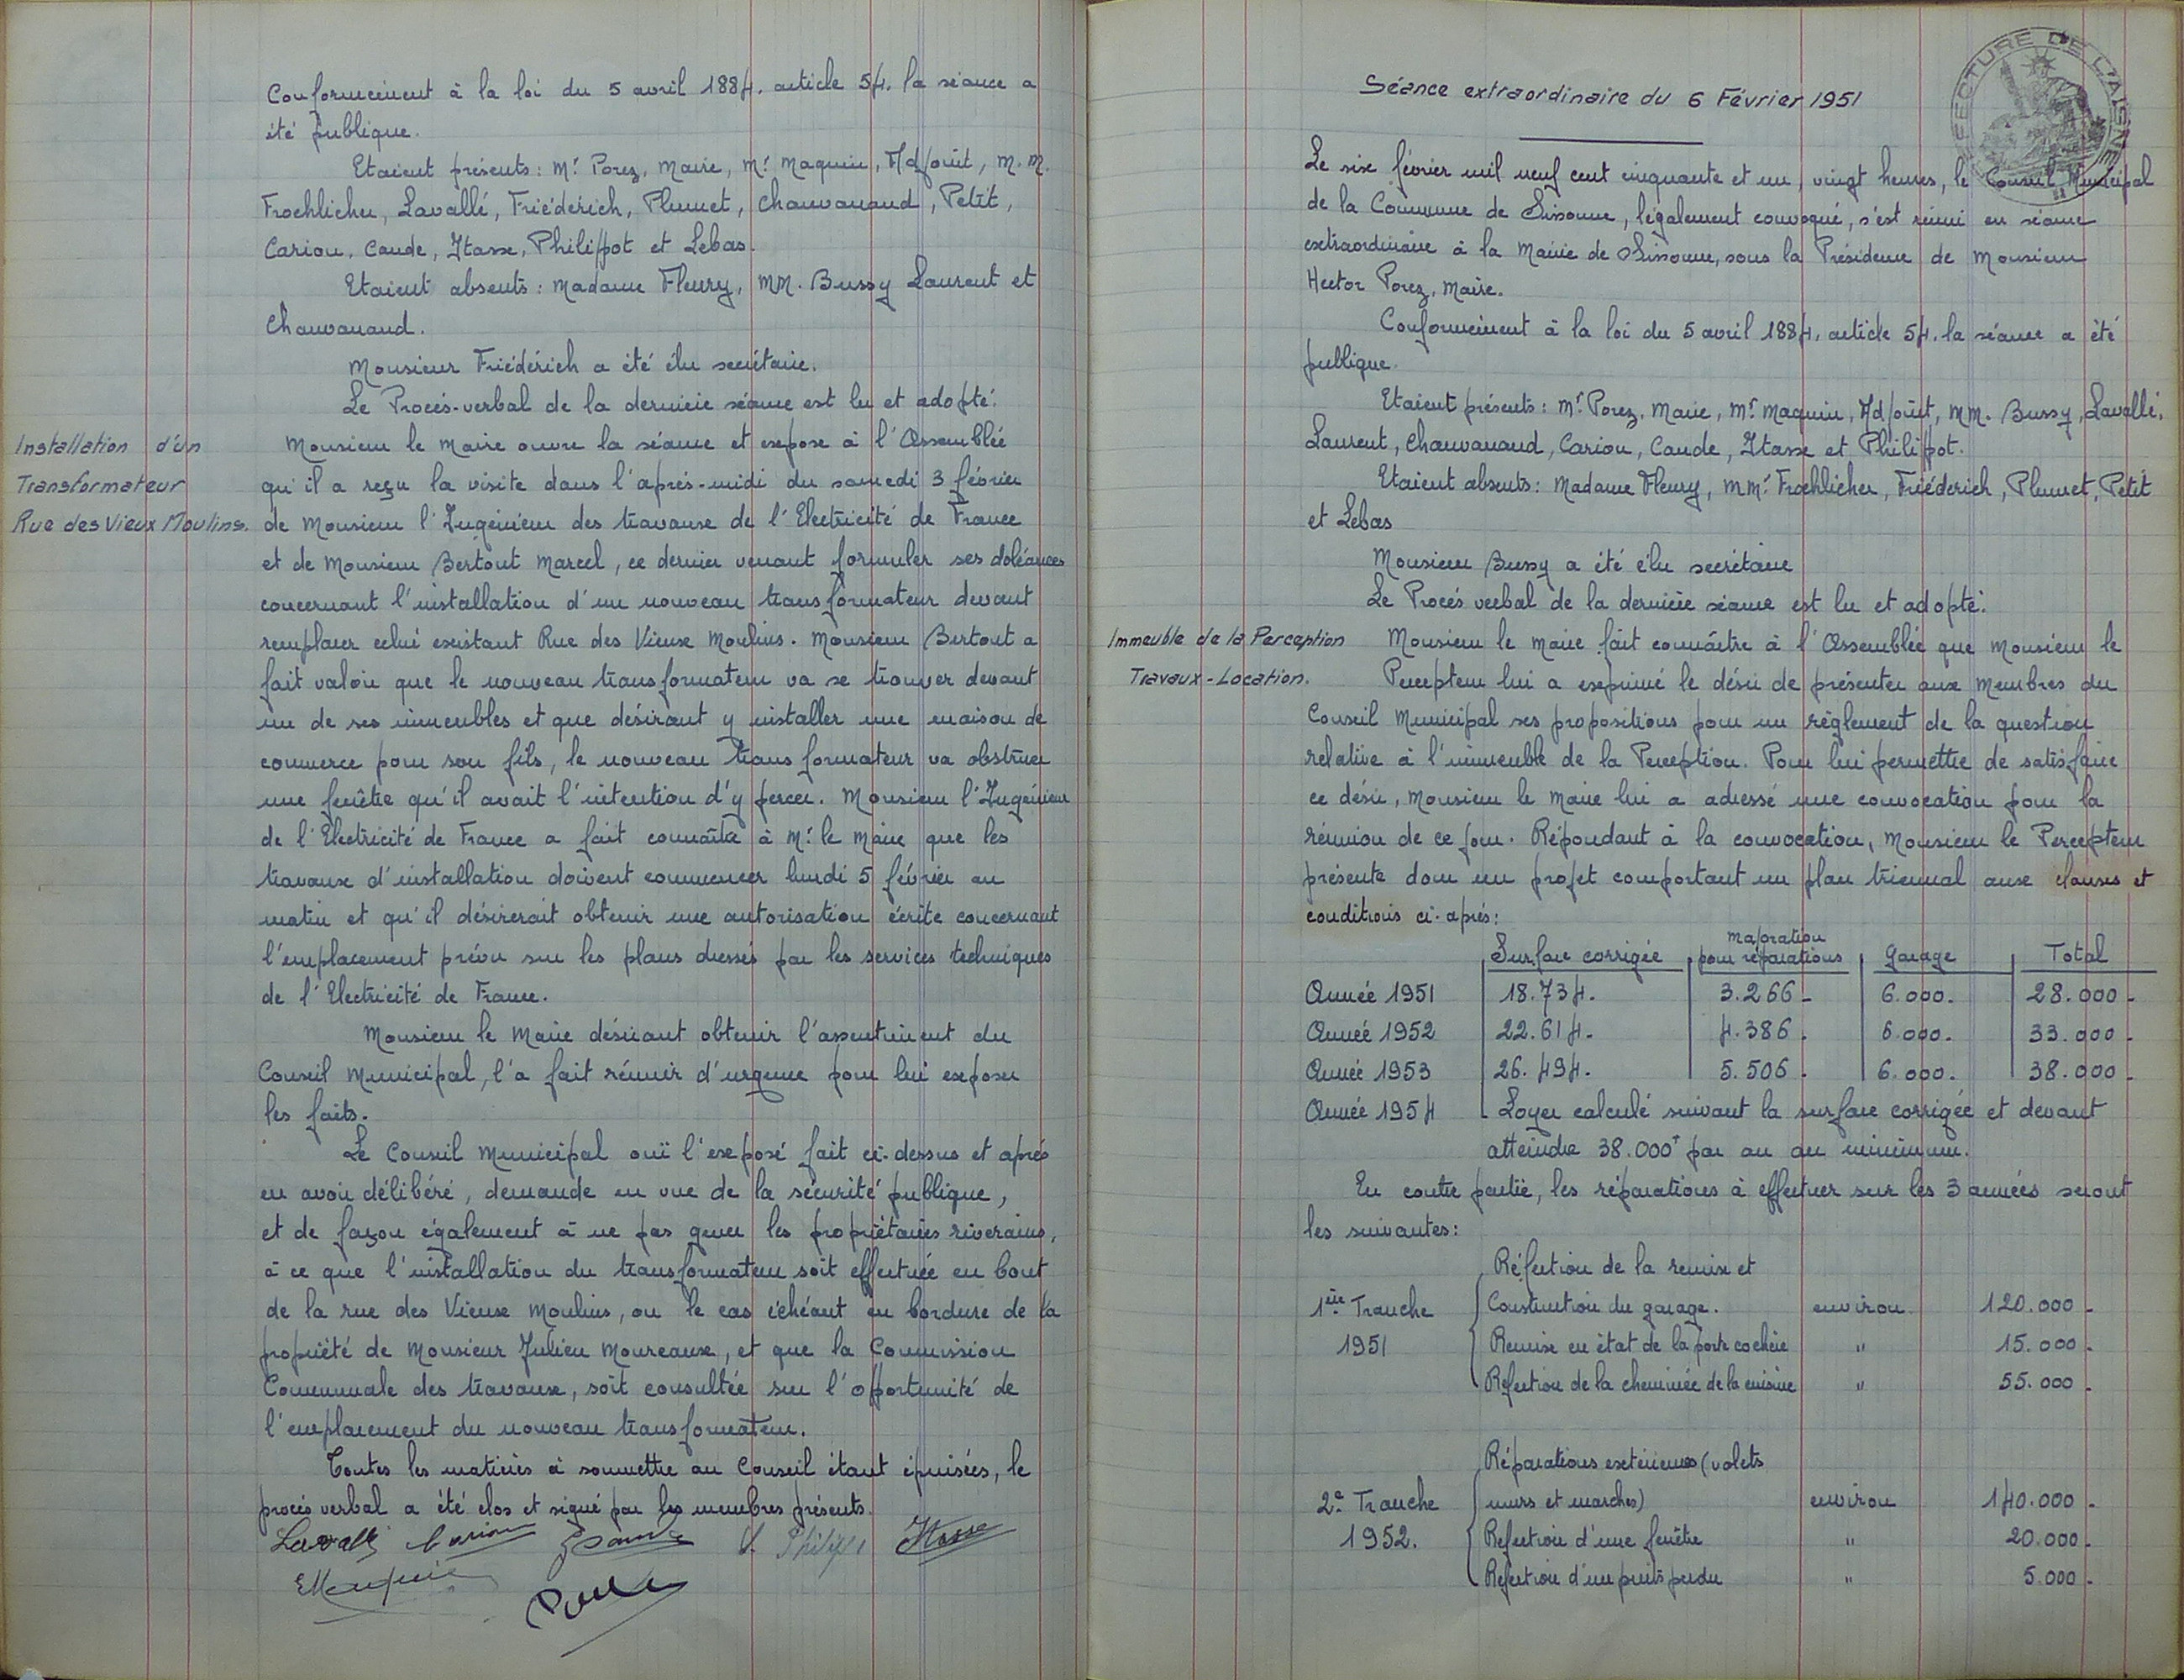 Conformément à la loi du 5 avril 1884, article 54, la séance a
été publique.
Etaient présents: Mr Porez, Maire, Mr Maquin, Adjoint, M.M.
Froehlicher, Lavallé, Friédérich, Plumet, Chauvanaud, Petit,
Cariou, Caude, Itasse, Philippot et Lebas.
Etaient absents: Madame Fleury, MM. Bussy Laurent et
Chauvanaud.
Monsieur Friédérich a été élu secrétaire.
Le Procès-verbal de la dernière séance est lu et adopté.
Installation d'un
Transformateur
Rue des Vieux Moulins.
Monsieur le Maire ouvre la séance et expose à l'Assemblée
qu'il a reçu la visite dans l'après-midi du samedi 3 février
de Monsieur l'Ingénieur des travaux de l'Electricité de France
et de Monsieur Bertout Marcel, ce dernier venant formuler ses doléances
concernant l'installation d'un nouveau transformateur devant
remplacer celui existant Rue des Vieux Moulins. Monsieur Bertout a
fait valoir que le nouveau transformateur va se trouver devant
un de ses immeubles et que désirant y installer une maison de
commerce pour son fils, le nouveau transformateur va obstruer
une fenêtre qu'il avait l'intention d'y percer. Monsieur l'Ingénieur
de l'Electricité de France a fait connaître à Mr le Maire que les
travaux d'installation doivent commencer lundi 5 février au
matin et qu'il désirerait obtenir une autorisation écrite concernant
l'emplacement prévu sur les plans dressés par les services techniques
de l'Electricité de France.
Monsieur le Maire désirant obtenir l'assentiment du
Conseil Municipal, l'a fait réunir d'urgence pour lui exposer
les faits.
Le Conseil Municipal ouï l'exposé fait ci-dessus et après
en avoir délibéré, demande en vue de la sécurité publique,
et de façon également à ne pas gener les propriétaires riverains,
à ce que l'installation du transformateur soit effectuée en bout
de la rue des Vieux Moulins, ou le cas échéant en bordure de la
propriété de Monsieur Julien Moureaux, et que la Commission
Communale des travaux, soit consultée sur l'opportunité de
l'emplacement du nouveau transformateur.
Toutes les matières à soumettre au Conseil étant épuisées, le
procès verbal a été clos et signé par les membres présents.
Lavallé Cariou Itasse
EMaquin
PRÉFECTURE DE L'AISNE
Séance extraordinaire du 6 Février 1951
Le six février mil neuf cent cinquante et un, vingt heures, le Conseil Municipal
de la Commune de Sissonne, légalement convoqué, s'est réuni en séance
extraordinaire à la Mairie de Sissonne, sous la Présidence de Monsieur
Hector Porez, Maire.
Conformément à la loi du 5 avril 1884, article 54, la séance a été
publique.
Etaient présents: Mr Porez, Maire, Mr Maquin, Adjoint, MM. Bussy, Lavallé,
Laurent, Chauvanaud, Cariou, Caude, Itasse et Philippot.
Etaient absents: Madame Fleury, MMrs Froehlicher, Friéderich, Plumet, Petit
et Lebas
Monsieur Bussy a été élu secrétaire
Le Procès verbal de la dernière séance est lu et adopté.
Immeuble de la Perception
Travaux - Location.
Monsieur le Maire fait connaître à l'Assemblée que Monsieur le
Percepteur lui a exprimé le désir de présenter aux Membres du
Conseil Municipal ses propositions pour un règlement de la question
relative à l'immeuble de la Perception. Pour lui permettre de satisfaire
ce désir, Monsieur le Maire lui a adressé une convocation pour la
réunion de ce jour. Répondant à la convocation, Monsieur le Percepteur
présente donc un projet comportant un plan triennal aux clauses et
conditions ci-après:
Surface corrigée majoration pour réparations Garage Total
Année 1951 18.734. 3.266 - 6.000. 28.000 -
Année 1952 22.614. 4.386. 6.000. 33.000 -
Année 1953 26.494. 5.506. 6.000. 38.000 -
Année 1954 Loyer calculé suivant la surface corrigée et devant
atteindre 38.000f par an au minimum.
En contre partie, les réparations à effectuer sur les 3 années seront
les suivantes:
Réfection de la remise et
1ère Tranche Construction du garage. environ 120.000 -
1951 Remise en état de la porte cochère " 15.000 -
Réfection de la cheminée de la cuisine " 55.000 -
Réparations extérieures (volets
2e Tranche murs et marches) environ 140.000 -
1952. Réfection d'une fenêtre " 20.000 -
Réfection d'un puits perdu " 5.000 -